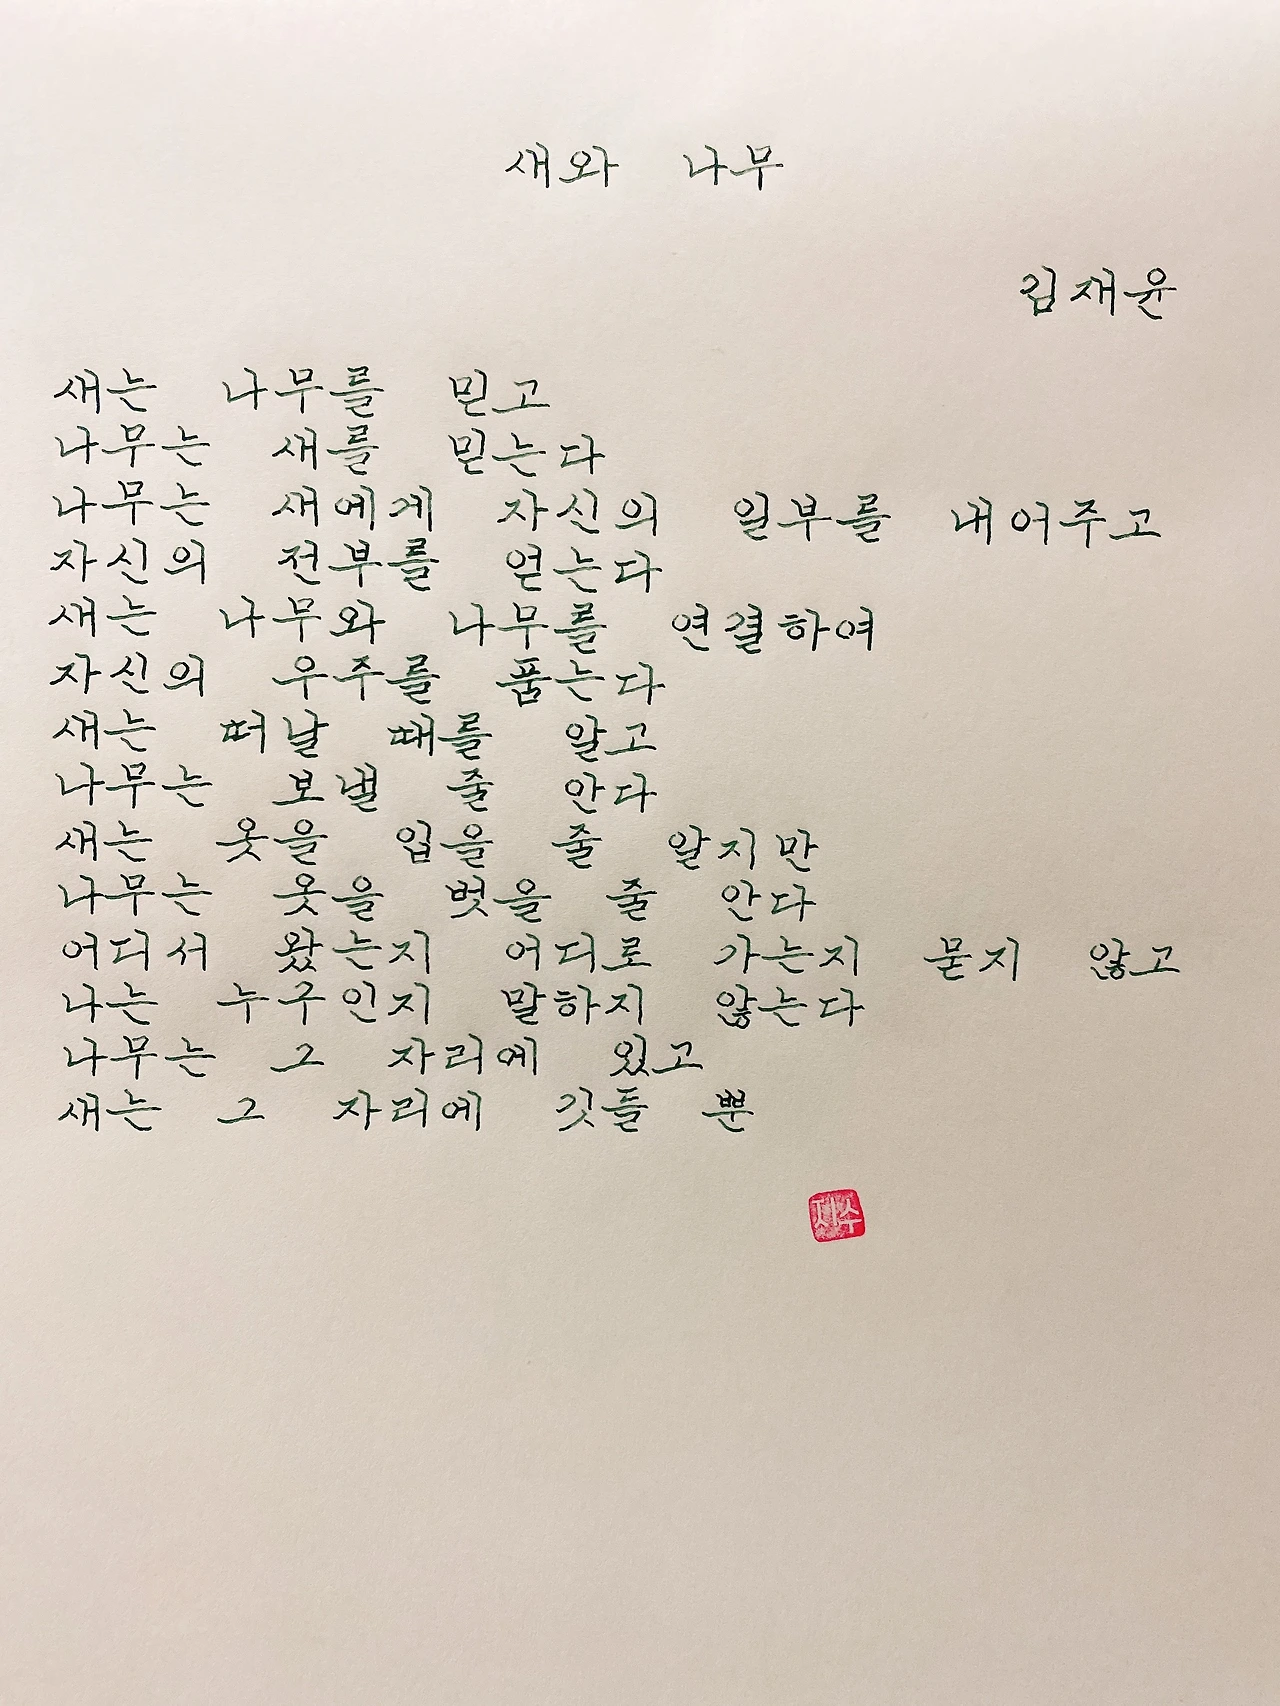 새와 나무
김재윤
새는 나무를 믿고
나무는 새를 믿는다
나무는 새에게 자신의 일부를 내어주고
자신의 전부를 얻는다
새는 나무와 나무를 연결하여
자신의 우주를 품는다
새는 떠날 때를 알고
나무는 보낼 줄 안다
새는 옷을 입을 줄 알지만
나무는 옷을 벗을 줄 안다
어디서 왔는지 어디로 가는지 묻지 않고
나는 누구인지 말하지 않는다
나무는 그 자리에 있고
새는 그 자리에 깃들 뿐